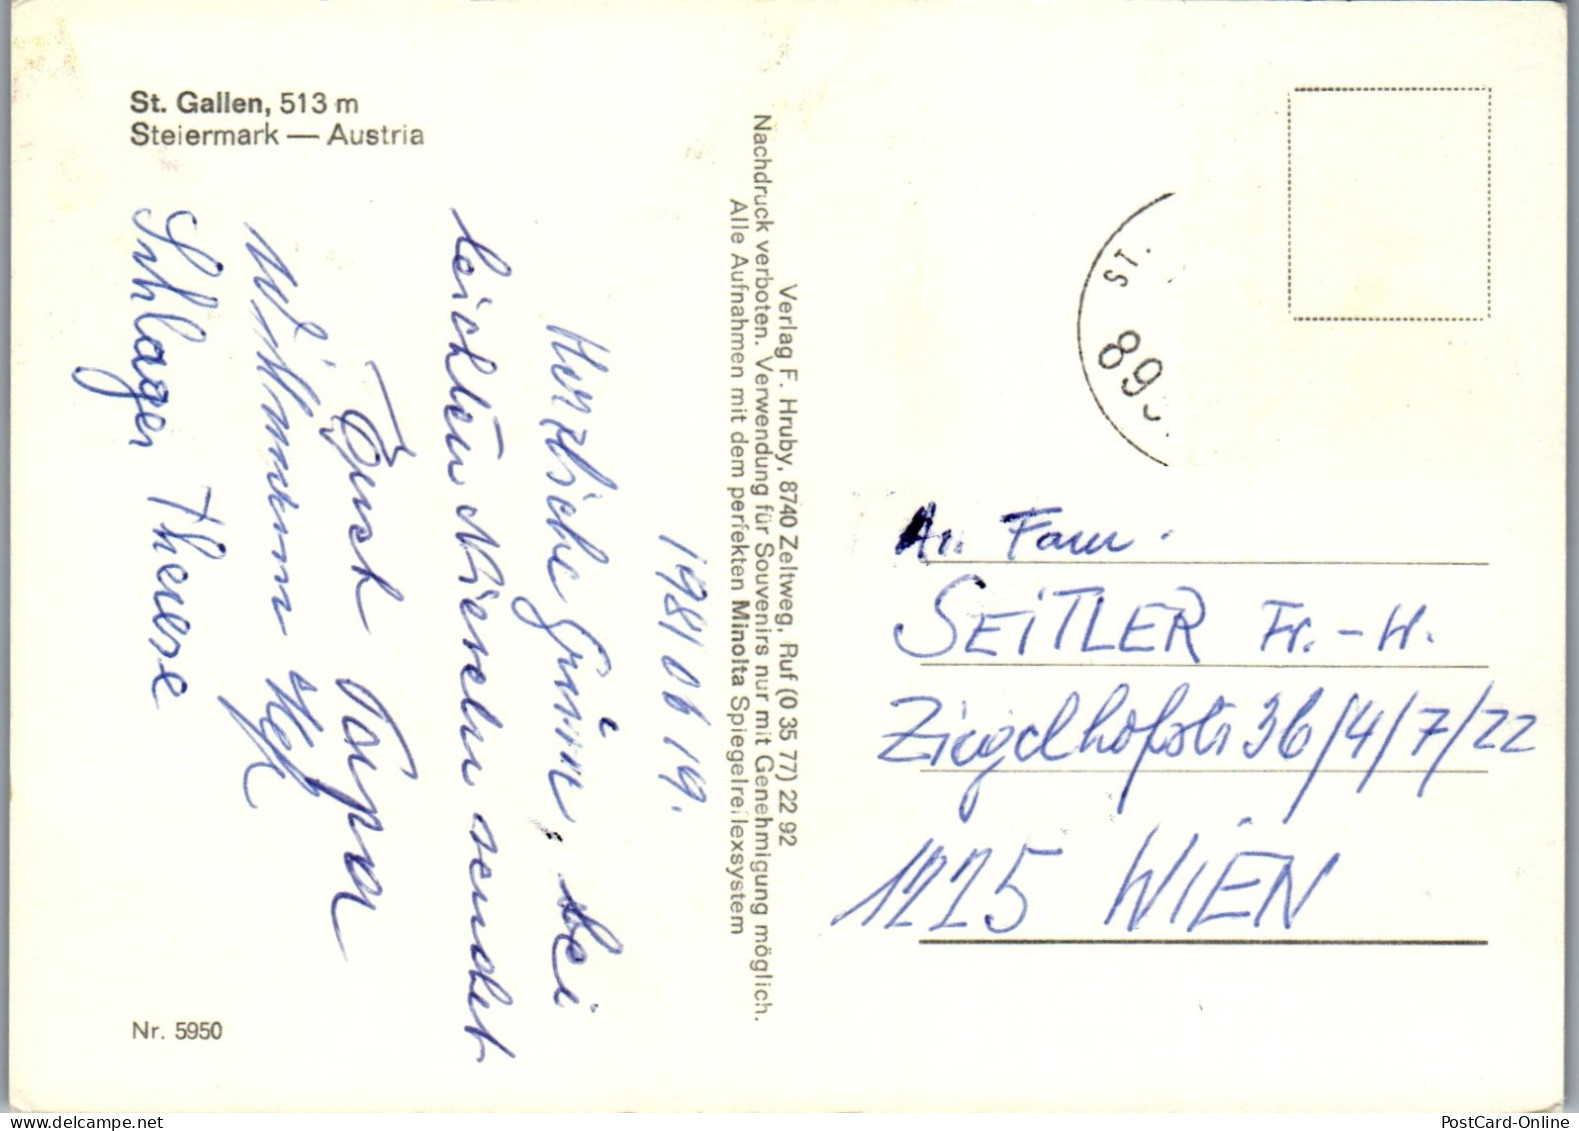 St. Gallen, 513 m
Steiermark — Austria
1981 06 19.
Herzliche Grüsse, bei
leichten Nieseln sendet
Eust
Willmann
Schlager Therese
Nr. 5950
Verlag F. Hruby, 8740 Zeltweg, Ruf (0 35 77) 22 92
Nachdruck verboten. Verwendung für Souvenirs nur mit Genehmigung möglich.
Alle Aufnahmen mit dem perfekten Minolta Spiegelreflexsystem
ST.
89
An Fam.
SEITLER Fr.-H.
Ziegelhofstr 36/4/7/22
1225 WIEN
www.delcampe.net
PostCard-Online